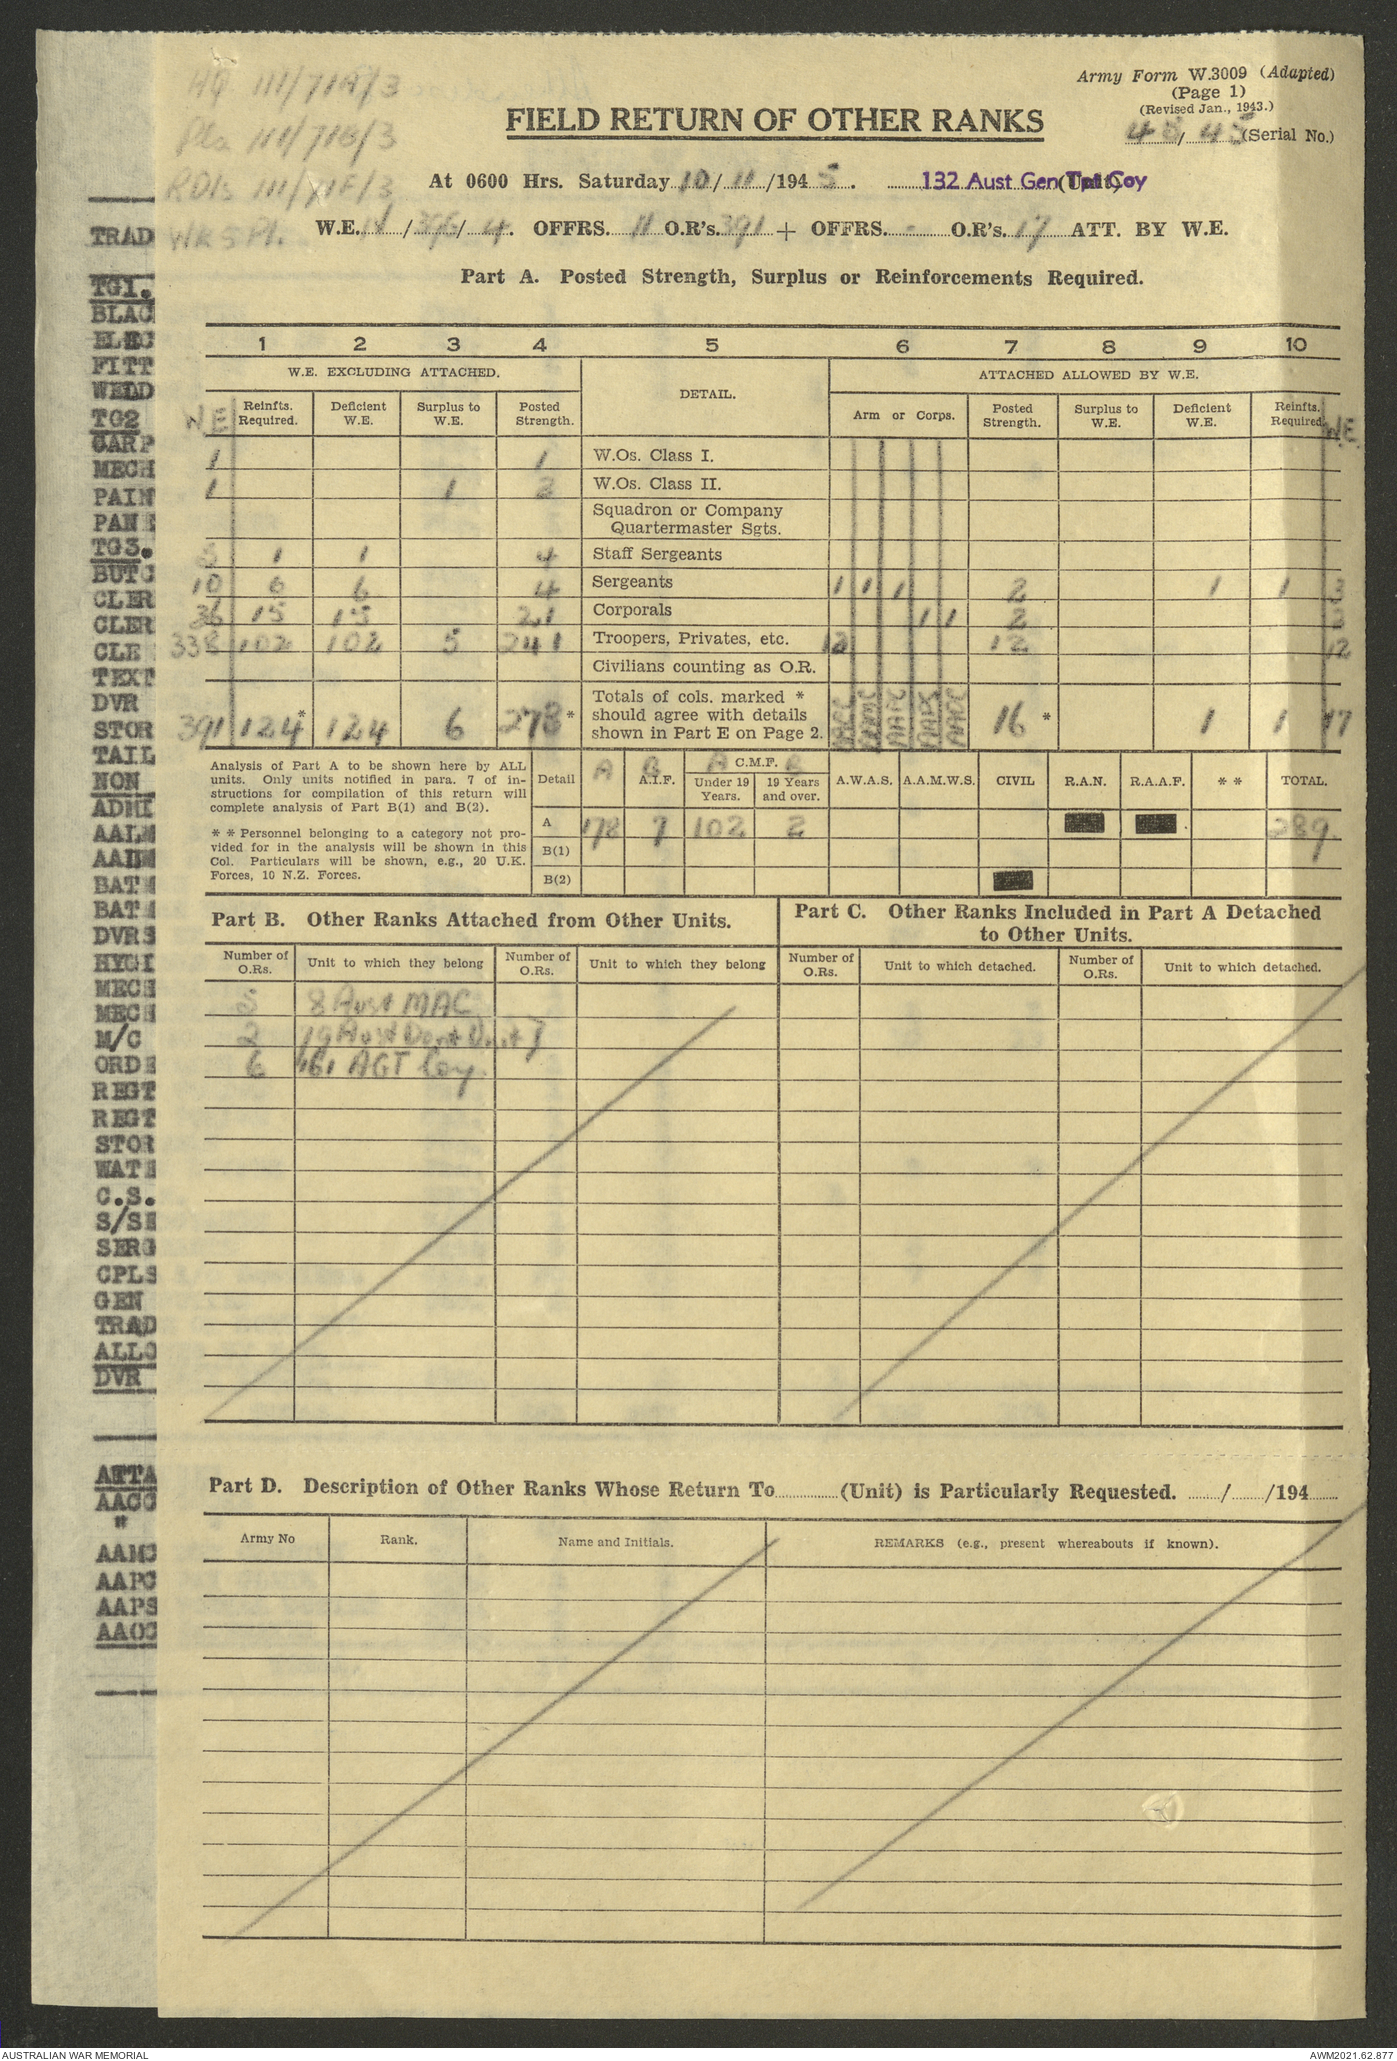 Army Form W.3009 (Adapted)
(Page 1)
(Revised Jan., 1943.)
45/45 (Serial No.)
HQ 111/71A/3
Pla 111/71B/3
RDLs 111/71F/3
WKS Pl.
FIELD RETURN OF OTHER RANKS
At 0600 Hrs. Saturday 10/11/1945. 132 Aust Gen Tpt Coy (Unit)
W.E. /396/4. OFFRS. 11 O.R's. 391 + OFFRS. - O.R's. 17 ATT. BY W.E.
Part A. Posted Strength, Surplus or Reinforcements Required.
1 2 3 4 5 6 7 8 9 10
W.E. EXCLUDING ATTACHED. DETAIL. ATTACHED ALLOWED BY W.E.
W.E Reinfts. Required. Deficient W.E. Surplus to W.E. Posted Strength. Arm or Corps. Posted Strength. Surplus to W.E. Deficient W.E. Reinfts. Required W.E.
1 1 W.Os. Class I.
1 1 2 W.Os. Class II.
Squadron or Company
Quartermaster Sgts.
5 1 1 4 Staff Sergeants
10 6 6 4 Sergeants 1 1 1 2 1 1 3
36 15 15 21 Corporals 1 1 2 2
338 102 102 5 241 Troopers, Privates, etc. 12 12 12
Civilians counting as O.R.
Totals of cols. marked *
should agree with details
shown in Part E on Page 2.
391 124* 124 6 278* AAPC AADC 16* 1 1 17
Analysis of Part A to be shown here by ALL
units. Only units notified in para. 7 of in-
structions for compilation of this return will
complete analysis of Part B(1) and B(2).
* * Personnel belonging to a category not pro-
vided for in the analysis will be shown in this
Col. Particulars will be shown, e.g., 20 U.K.
Forces, 10 N.Z. Forces.
Detail A B A.I.F. A C.M.F. B Under 19 Years. 19 Years and over. A.W.A.S. A.A.M.W.S. CIVIL R.A.N. R.A.A.F. * * TOTAL.
A 178 7 102 2 289
B(1)
B(2)
Part B. Other Ranks Attached from Other Units.
Part C. Other Ranks Included in Part A Detached
to Other Units.
Number of O.Rs. Unit to which they belong Number of O.Rs. Unit to which they belong Number of O.Rs. Unit to which detached. Number of O.Rs. Unit to which detached.
5 8 Aust MAC
2 19 Aust Dent Unit
6 161 AGT Coy.
Part D. Description of Other Ranks Whose Return To (Unit) is Particularly Requested. / /194
Army No Rank. Name and Initials. REMARKS (e.g., present whereabouts if known).
TRAD
TG1.
BLAC
ELEC
FITT
WELD
TG2
CARP
MECH
PAIN
PAN
TG3.
BUTC
CLER
CLER
CLE
TEXT
DVR
STOR
TAIL
NON
ADMI
AALM
BAT
BAT
DVRS
HYGI
MECH
MECH
M/C
ORDE
REGT
REGT
STOR
WATE
C.S.
S/SE
SERG
CPLS
GEN
TRAD
ALLO
DVR
ATTA
AACC
"
AAMC
AAPC
AAPS
AAOC
AUSTRALIAN WAR MEMORIAL
AWM2021.62.877